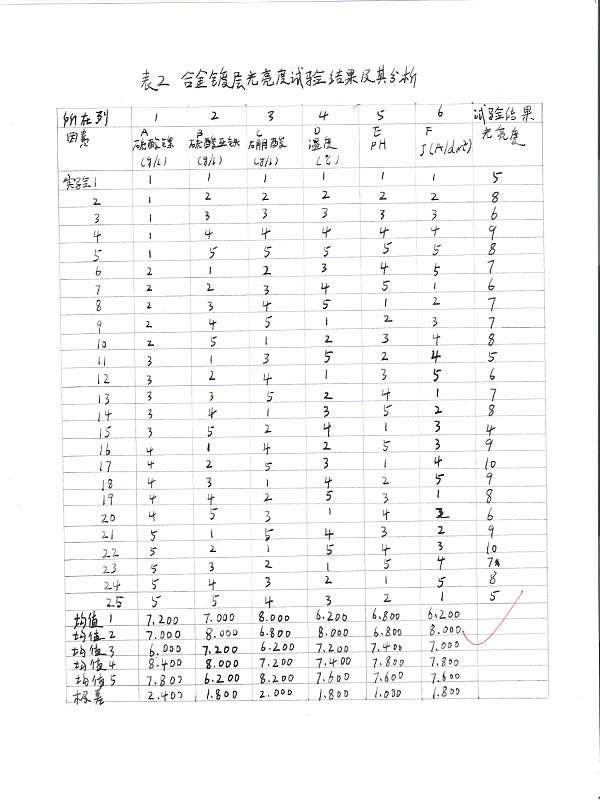 表2 合金镀层光亮度试验结果及其分析
所在列 1 2 3 4 5 6 试验结果
因素 A B C D E F 光亮度
硫酸镍 硫酸亚铁 硼酸 温度 PH J(A/dm²)
(g/L) (g/L) (g/L) (℃)
实验1 1 1 1 1 1 1 5
2 1 2 2 2 2 2 8
3 1 3 3 3 3 3 6
4 1 4 4 4 4 4 9
5 1 5 5 5 5 5 8
6 2 1 2 3 4 5 7
7 2 2 3 4 5 1 6
8 2 3 4 5 1 2 7
9 2 4 5 1 2 3 7
10 2 5 1 2 3 4 8
11 3 1 3 5 2 4 5
12 3 2 4 1 3 5 6
13 3 3 5 2 4 1 7
14 3 4 1 3 5 2 8
15 3 5 2 4 1 3 4
16 4 1 4 2 5 3 9
17 4 2 5 3 1 4 10
18 4 3 1 4 2 5 9
19 4 4 2 5 3 1 8
20 4 5 3 1 4 2 6
21 5 1 5 4 3 2 9
22 5 2 1 5 4 3 10
23 5 3 2 1 5 4 7
24 5 4 3 2 1 5 8
25 5 5 4 3 2 1 5
均值1 7.200 7.000 8.000 6.200 6.800 6.200
均值2 7.000 8.000 6.600 8.000 6.800 8.000
均值3 6.000 7.200 6.200 7.200 7.400 7.000
均值4 8.400 8.000 7.200 7.400 7.800 7.800
均值5 7.800 6.200 8.200 7.600 7.600 7.600
极差 2.400 1.800 2.000 1.800 1.000 1.800